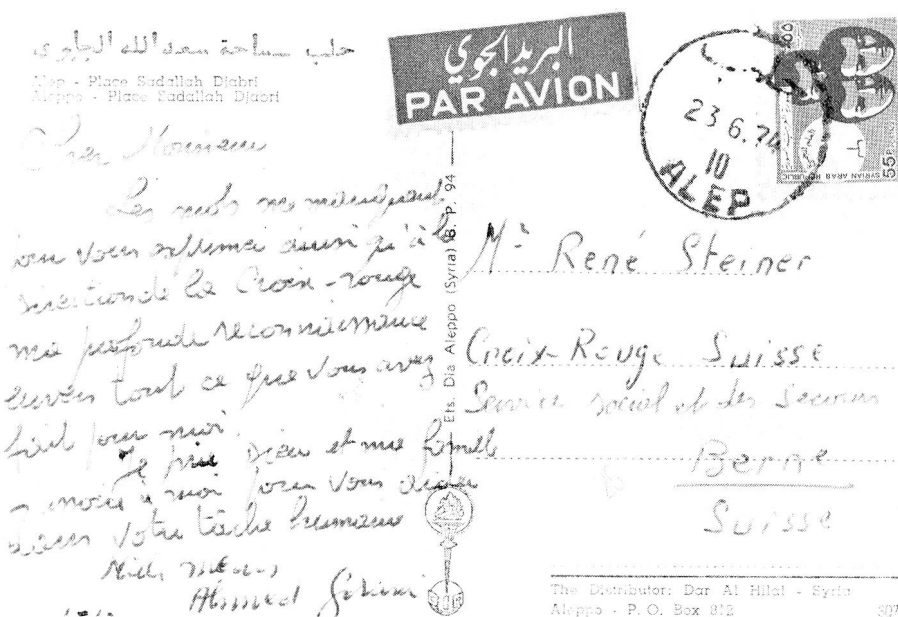 حلب ساحة سعد الله الجابري
Alep - Place Sadallah Djabri
Aleppo - Place Sadallah Djabri
البريد الجوي
PAR AVION
23.6.74
10
ALEP
SYRIAN ARAB REPUBLIC
55 P.
Cher Monsieur
Les mots me manquent
pour vous exprimer ainsi qu'à la
direction de la Croix-rouge
ma profonde reconnaissance
envers tout ce que vous avez
fait pour moi.
Je prie Dieu et ma famille
à moi pour vous aider
dans votre tâche humaine
Ahmed
Ets. Dia Aleppo (Syria) B. P. 94
Mr René Steiner
Croix-Rouge Suisse
Service social et des secours
Berne
Suisse
The Distributor: Dar Al Hilal - Syria
Aleppo - P. O. Box 812